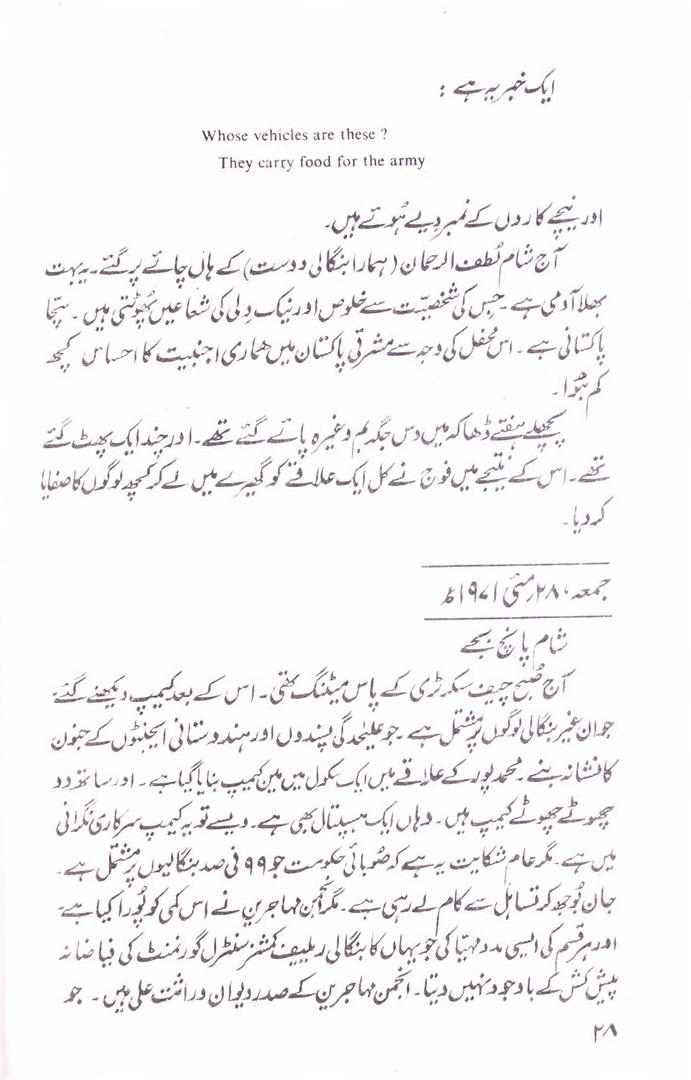 ایک خبر یہ ہے :
Whose vehicles are these ?
They carry food for the army
اور نیچے کاروں کے نمبر دیے ہُوئے ہیں۔
آج شام لُطف الرحمان (ہمارا بنگالی دوست) کے ہاں چائے پر گئے۔ یہ بہت
بھلا آدمی ہے۔ جس کی شخصیّت سے خلوص اور نیک دِلی کی شعاعیں پھُوٹتی ہیں۔ سچّا
پاکستانی ہے۔ اس محفل کی وجہ سے مشرقی پاکستان میں ہماری اجنبیت کا احساس کچھ
کم ہُوا۔
پچھلے ہفتے ڈھاکہ میں دس جگہ بم وغیرہ پائے گئے تھے۔ اور چند ایک پھٹ گئے
تھے۔ اس کے نتیجے میں فوج نے کل ایک علاقے کو گھیرے میں لے کر کچھ لوگوں کا صفایا
کر دیا۔
جمعہ، ۲۸؍مئی ۱۹۷۱ء
شام پانچ بجے
آج صُبح چیف سکرٹری کے پاس میٹنگ تھی۔ اس کے بعد کیمپ دیکھنے گئے۔
جو ان غیر بنگالی لوگوں پر مشتمل ہے۔ جو علیٰحدگی پسندوں اور ہندوستانی ایجنٹوں کے جنون
کا نشانہ بنے۔ محمد پور کے علاقے میں ایک سکول میں مین کیمپ بنایا گیا ہے۔ اور ساتھ دو
چھوٹے چھوٹے کیمپ ہیں۔ وہاں ایک ہسپتال بھی ہے۔ ویسے تو یہ کیمپ سرکاری نگرانی
میں ہے۔ مگر عام شکایت یہ ہے کہ صُوبائی حکومت جو ۹۹ فی صد بنگالیوں پر مشتمل ہے۔
جان بُوجھ کر تساہل سے کام لے رہی ہے۔ مگر انجمن مہاجرین نے اس کمی کو پُورا کیا ہے۔
اور ہر قسم کی ایسی مدد مہیّا کی جو یہاں کا بنگالی ریلیف کمشنر سنٹرل گورنمنٹ کی فیاضانہ
پیش کش کے باوجود نہیں دیتا۔ انجمن مہاجرین کے صدر دیوان وراثت علی ہیں۔ جو
۲۸